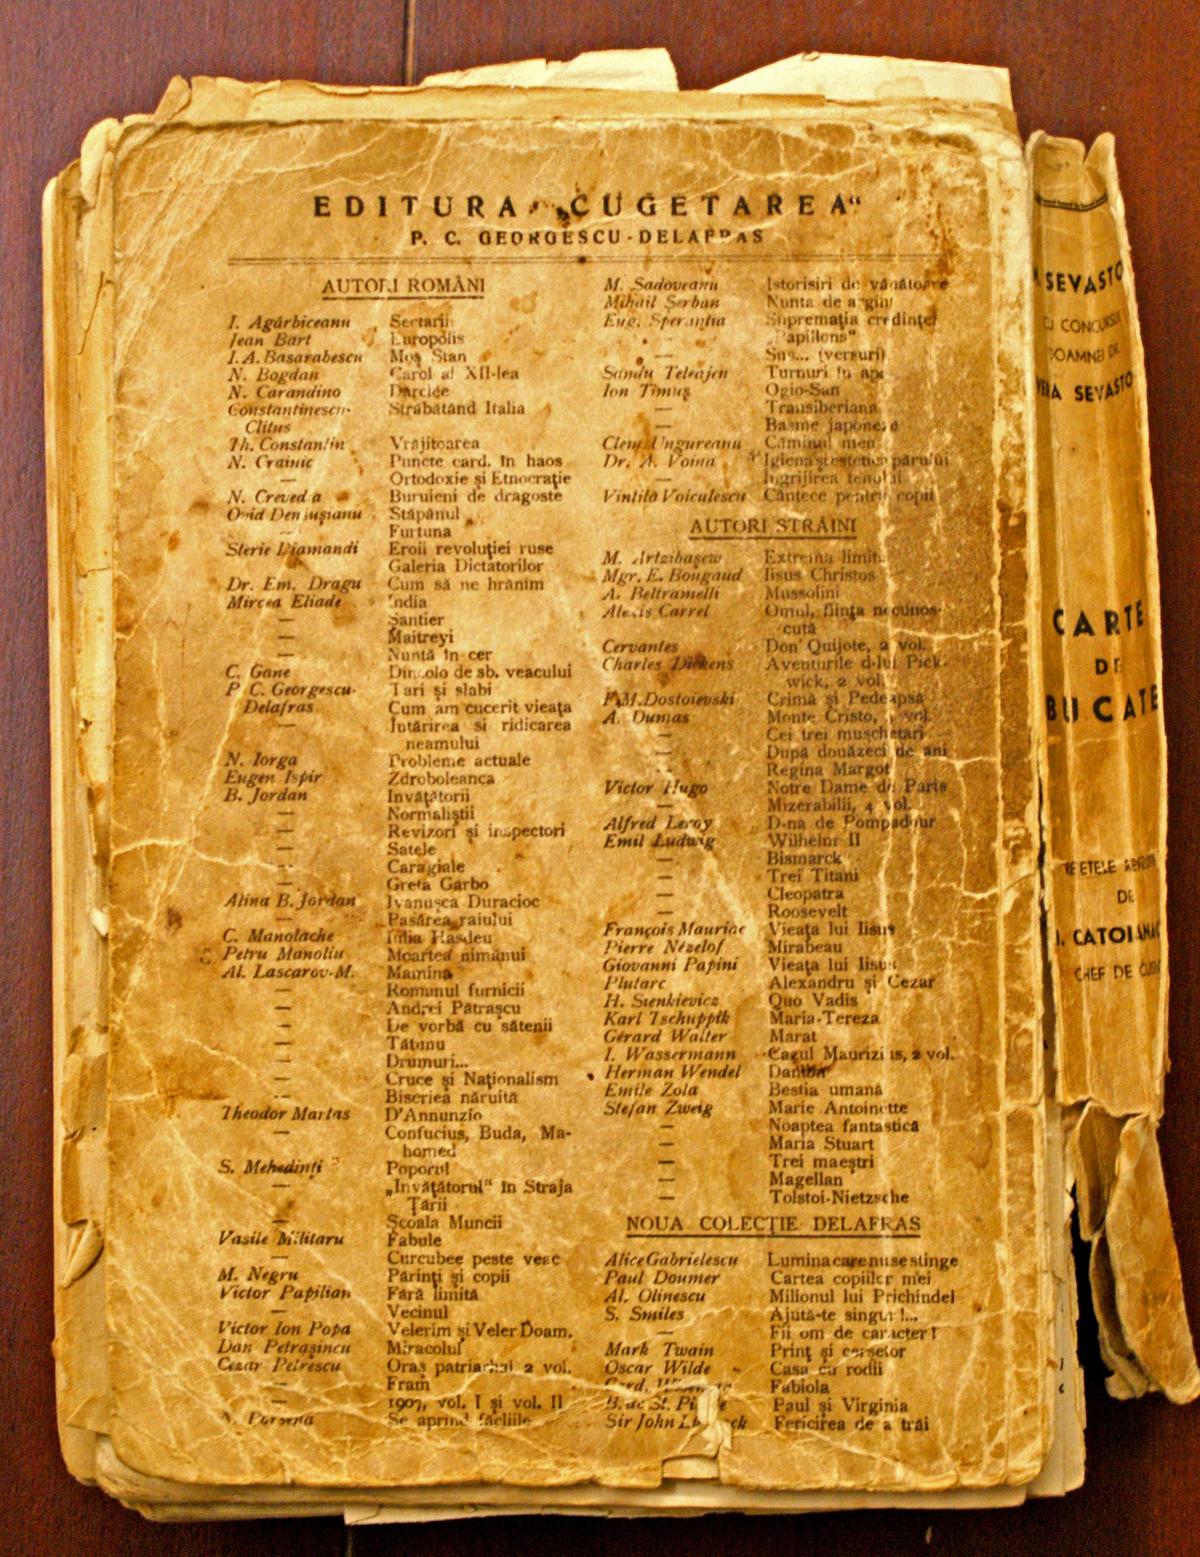 EDITURA „CUGETAREA“
P. C. GEORGESCU-DELAFRAS
AUTORI ROMÂNI
I. Agârbiceanu Sectarii
Jean Bart Europolis
I. A. Basarabescu Moș Stan
N. Bogdan Carol al XII-lea
N. Carandino Darclée
Constantinescu- Străbătând Italia
Clitus
Th. Constantin Vrăjitoarea
N. Crainic Puncte card. în haos
— Ortodoxie și Etnocrație
N. Creveda Buruieni de dragoste
Ovid Densușianu Stăpânul
— Furtuna
Sterie Diamandi Eroii revoluției ruse
Galeria Dictatorilor
Dr. Em. Dragu Cum să ne hrănim
Mircea Eliade India
— Șantier
— Maitreyi
— Nuntă în cer
C. Gane Dincolo de sb. veacului
P. C. Georgescu- Tari și slabi
Delafras Cum am cucerit vieața
— Întărirea si ridicarea
neamului
N. Iorga Probleme actuale
Eugen Ispir Zdroboleanca
B. Jordan Invățătorii
— Normaliștii
— Revizori și inspectori
— Satele
— Caragiale
— Greta Garbo
Alina B. Jordan Ivanușca Duracioc
— Pasărea raiului
C. Manolache Iulia Hasdeu
Petru Manoliu Moartea nimănui
Al. Lascarov-M. Mamina
— Romanul furnicii
— Andrei Pătrașcu
— De vorbă cu sătenii
— Tătunu
— Drumuri...
— Cruce și Naționalism
— Biserica năruită
Theodor Martas D'Annunzio
— Confucius, Buda, Ma-
homed
S. Mehedinți Poporul
— „Invățătorul“ în Straja
Țării
— Școala Muncii
Vasile Militaru Fabule
— Curcubee peste veac
M. Negru Părinți și copii
Victor Papilian Fără limită
— Vecinul
Victor Ion Popa Velerim și Veler Doam.
Dan Petrașincu Miracolul
Cezar Petrescu Oraș patriarhal 2 vol.
— Fram
— 1907, vol. I și vol. II
N. Porsena Se aprind făcliile
M. Sadoveanu Istorisiri de vânătoare
Mihail Șerban Nunta de argint
Eug. Sperantia Supremația credinței
— „Papillons“
— Sus... (versuri)
Sandu Teleajen Turnuri în apă
Ion Timuș Ogio-San
— Transiberiana
— Basme japoneze
Clem. Ungureanu Căminul meu
Dr. A. Voina Igiena și estetica părului
Îngrijirea tenului
Vintilă Voiculescu Cântece pentru copii
AUTORI STRĂINI
M. Artzibașew Extrema limită
Mgr. E. Bougaud Iisus Christos
A. Beltramelli Mussolini
Alexis Carrel Omul, ființa necunos-
cută
Cervantes Don Quijote, 2 vol.
Charles Dickens Aventurile d-lui Pick-
wick, 2 vol.
F. M. Dostoievski Crimă și Pedeapsă
A. Dumas Monte Cristo, vol.
— Cei trei mușchetari
— După douăzeci de ani
Regina Margot
Victor Hugo Notre Dame de Paris
— Mizerabilii, 4 vol.
Alfred Leroy D-na de Pompadour
Emil Ludwig Wilhelm II
— Bismarck
— Trei Titani
— Cleopatra
— Roosevelt
François Mauriac Vieața lui Iisus
Pierre Nézelof Mirabeau
Giovanni Papini Vieața lui Iisus
Plutarc Alexandru și Cezar
H. Sienkievicz Quo Vadis
Karl Tschuppik Maria-Tereza
Gérard Walter Marat
I. Wassermann Cazul Maurizius, 2 vol.
Herman Wendel Danton
Emile Zola Bestia umană
Stefan Zweig Marie Antoinette
— Noaptea fantastică
— Maria Stuart
— Trei maeștri
— Magellan
— Tolstoi-Nietzsche
NOUA COLECȚIE DELAFRAS
Alice Gabrielescu Lumina care nu se stinge
Paul Doumer Cartea copiilor mei
Al. Olinescu Milionul lui Prichindel
S. Smiles Ajută-te singur!...
— Fii om de caracter!
Mark Twain Prinț și cerșetor
Oscar Wilde Casa cu rodii
Card. Fabiola
B. de St. Paul și Virginia
Sir John Fericirea de a trăi
SEVASTO
CU CONCURSUL
DOAMNEI DE
SEVASTO
CARTE
DE
BUCATE
DE
CHEF DE